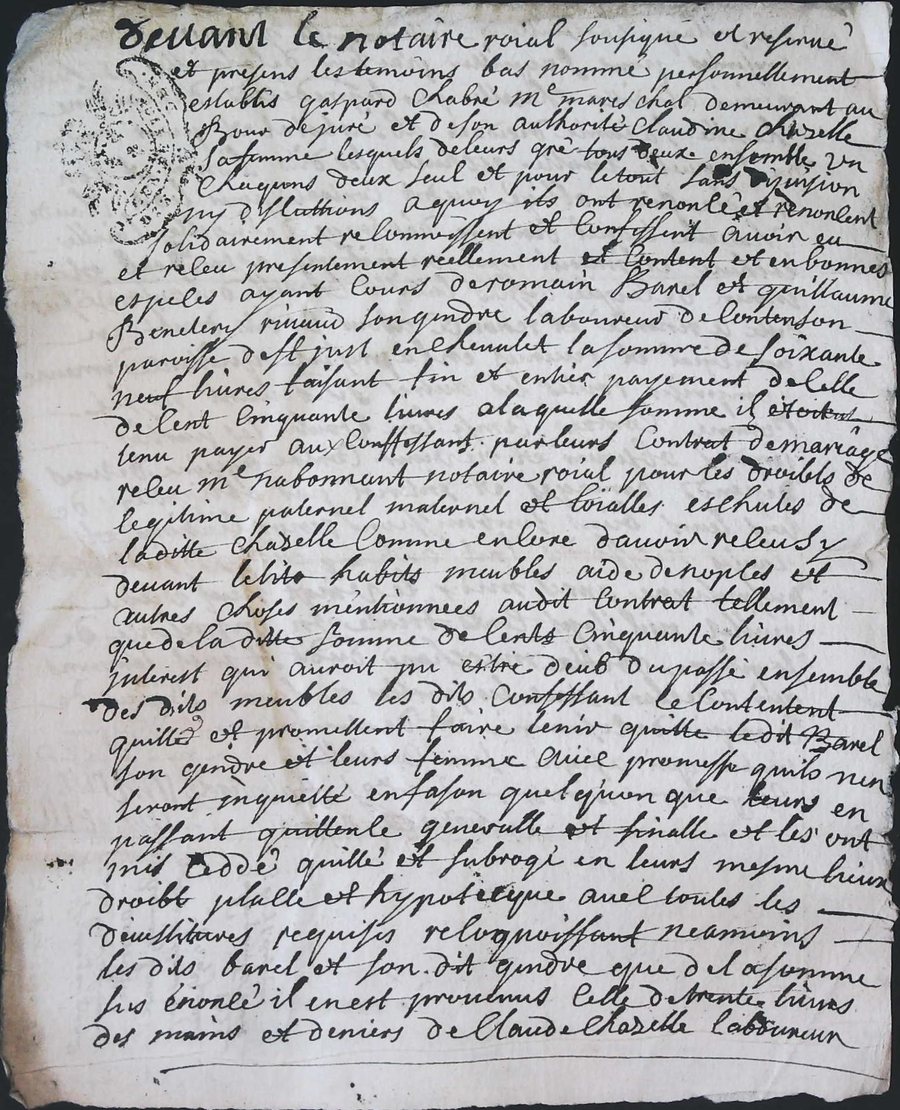 devant le notaire roial sousigné et reservé
et presens les temoins bas nommé personnellement
establis gaspard Chabré me mareschal demeurant au
Bour dejuré et deson authorité Claudine Chazelle
sa femme lesquels deleurs gré tous deux ensemble un
Chaquns deux seul et pour letout sans division
ny discutions a quoy ils ont renoncé et renoncent
solidairement reconnoissent et Confessent avoir eu
et receu presentement réellement et Content et en bonnes
especes ayant Cours de romain Barel et guillaume
rivaud son gendre laboureurs de Contenson
paroisse de st just en Chevalet la somme de soixante
neuf livres faisant fin et entier payement de Celle
de Cent Cinquante livres a laquelle somme il
tenu payer aux Conffessant par leurs Contrat de mariage
receu me nabonnant notaire roial pour les droicts de
legitime paternel maternel et escheutes de
la ditte Chazelle Comme encore davoir receus y
devant habits meubles aide de nopces et
autres Choses mentionnees audit Contrat tellement
que de la ditte somme de Cents Cinquante livres
interest qui auroit pu estre deub du passé ensemble
des dits meubles les dits Confessant se Contentent
quittes et promettent faire tenir quitte ledit Barel
son gendre et leurs femme avec promesse quils nen
seront inquietté en fason quelquon que leurs en
passant quittence generalle et finalle et les ont
mis Ceddé quitté et subrogé en leurs mesme lieux
droibt place et hypotecque avec toutes les
requises neamoins
les dits barel et son dit gendre que de la somme
sus énoncé il en est provenus Celle de trente livres
des mains et deniers de Claude Chazelle laboureur